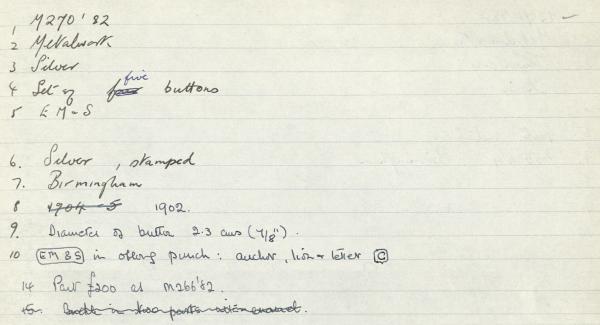 1 M270'82
2 Metalwork
3 Silver
4 Set of four five buttons
5 EM-S
6. Silver, stamped
7. Birmingham
8 1904-5 1902.
9. Diameter of button 2.3 cms (7/8").
10 EM&S in oblong punch: anchor, lion & letter C
14 Part £200 as M266'82.
15. Buckle in two parts